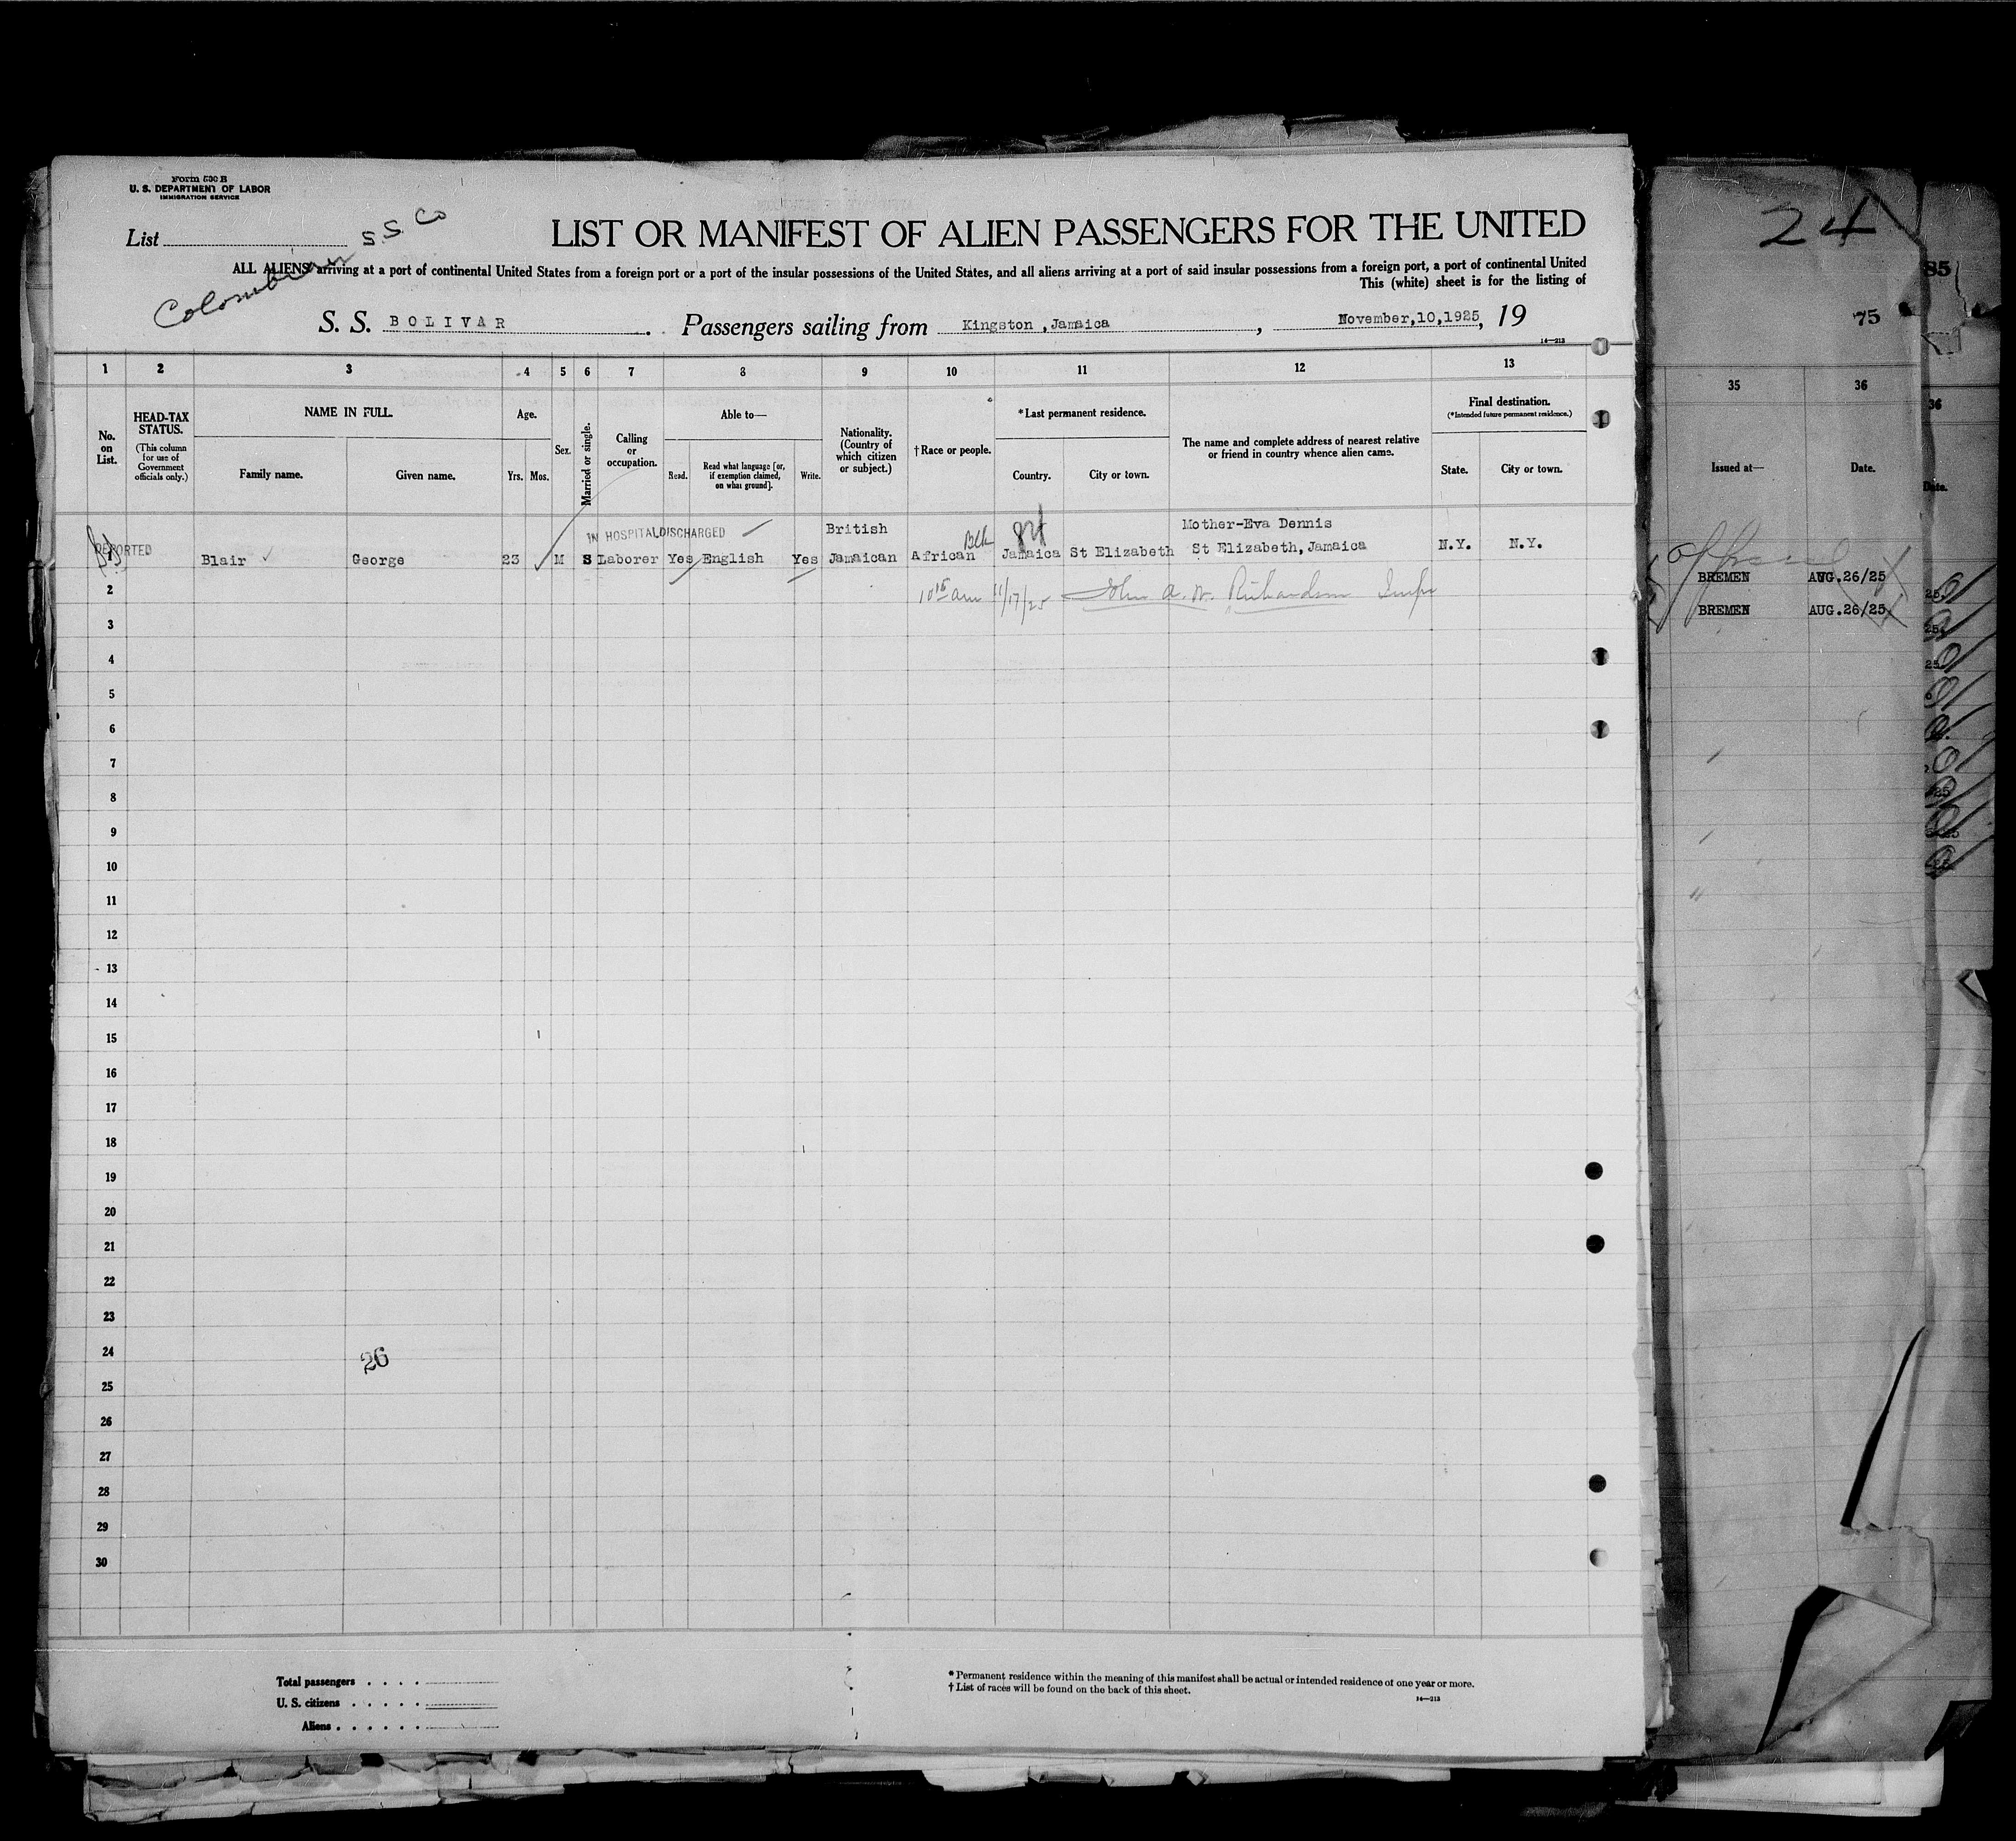 Form 500 B
U. S. DEPARTMENT OF LABOR
IMMIGRATION SERVICE
List
Colombian S.S. Co
LIST OR MANIFEST OF ALIEN PASSENGERS FOR THE UNITED
ALL ALIENS arriving at a port of continental United States from a foreign port or a port of the insular possessions of the United States, and all aliens arriving at a port of said insular possessions from a foreign port, a port of continental United
This (white) sheet is for the listing of
S. S. BOLIVAR. Passengers sailing from Kingston ,Jamaica, November,10,1925, 19
14—213
1 2 3 4 5 6 7 8 9 10 11 12 13
No. on List.
HEAD-TAX STATUS.
(This column for use of Government officials only.)
NAME IN FULL.
Family name. Given name.
Age.
Yrs. Mos.
Sex.
Married or single.
Calling or occupation.
Able to—
Read. Read what language [or, if exemption claimed, on what ground]. Write.
Nationality. (Country of which citizen or subject.)
†Race or people.
*Last permanent residence.
Country. City or town.
The name and complete address of nearest relative or friend in country whence alien came.
Final destination.
(*Intended future permanent residence.)
State. City or town.
IN HOSPITAL DISCHARGED British Blk Mother-Eva Dennis
DEPORTED Blair George 23 M S Laborer Yes English Yes Jamaican African Jamaica St Elizabeth St Elizabeth, Jamaica N.Y. N.Y.
2 10 15 am 11/17/25 John A. W. Richardson Insp
3
4
5
6
7
8
9
10
11
12
13
14
15
16
17
18
19
20
21
22
23
24
26
25
26
27
28
29
30
Total passengers
U. S. citizens
Aliens
* Permanent residence within the meaning of this manifest shall be actual or intended residence of one year or more.
† List of races will be found on the back of this sheet.
14—213
24
75
35 36
Issued at— Date.
BREMEN AUG.26/25
BREMEN AUG.26/25
85
36
Date.